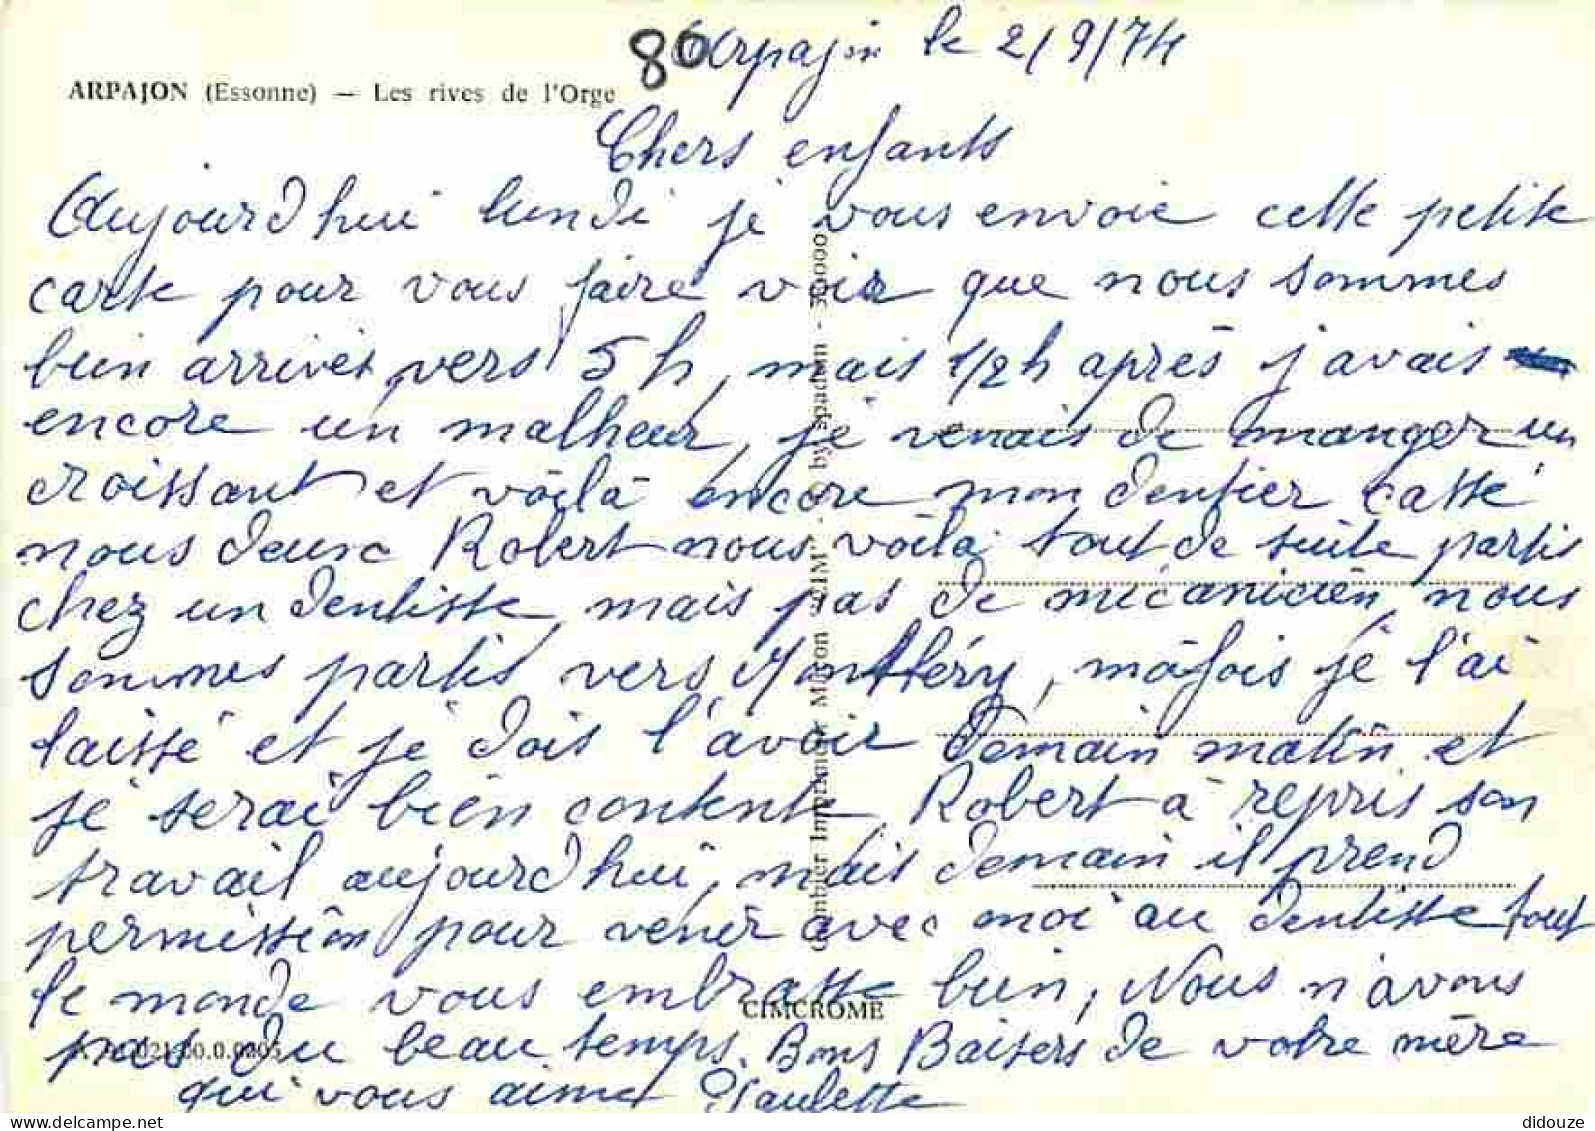 80
Arpajon le 2/9/74
ARPAJON (Essonne) — Les rives de l'Orge
Chers enfants
Aujourd'hui lundi je vous envoie cette petite
carte pour vous faire voir que nous sommes
bien arrivés vers 5 h, mais 1/2 h après j'avais
encore un malheur, je venais de manger un
croissant et voilà encore mon dentier cassé
nous deux Robert nous voilà tout de suite partis
chez un dentiste, mais pas de mécanicien, nous
sommes partis vers Montlhéry, mafois je l'ai
laissé et je dois l'avoir demain matin et
je serai bien contente, Robert a repris son
travail aujourd'hui, mais demain il prend
permission pour venir avec moi au dentiste tout
le monde vous embrasse bien, Nous n'avons
pas du beau temps. Bons Baisers de votre mère
qui vous aime Paulette
Combier Imprimeur Macon "CIM" - by spadem - 30000
CIMCROME
didouze